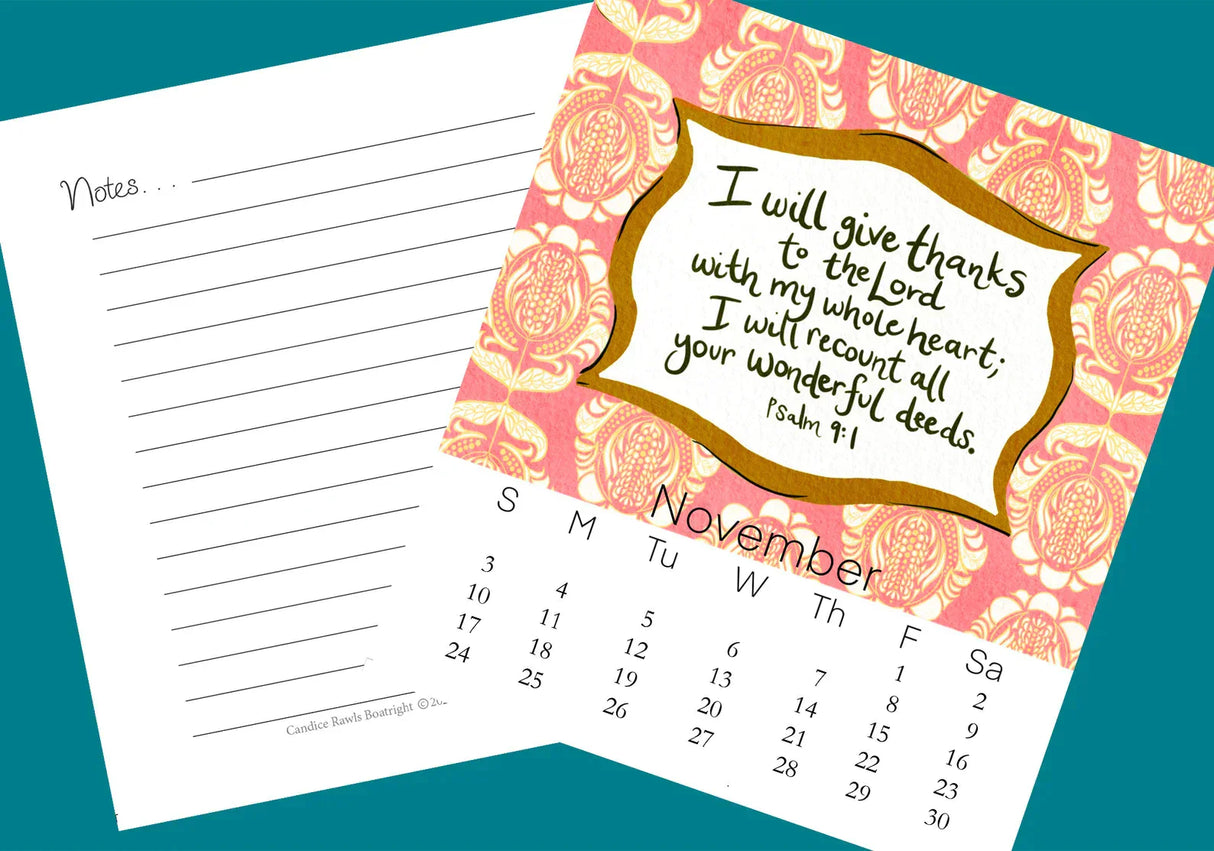 Notes. . .
Candice Rawls Boatright ©
I will give thanks
to the Lord
with my whole heart;
I will recount all
your wonderful deeds.
Psalm 9:1
November
S M Tu W Th F Sa
1 2
3 4 5 6 7 8 9
10 11 12 13 14 15 16
17 18 19 20 21 22 23
24 25 26 27 28 29 30